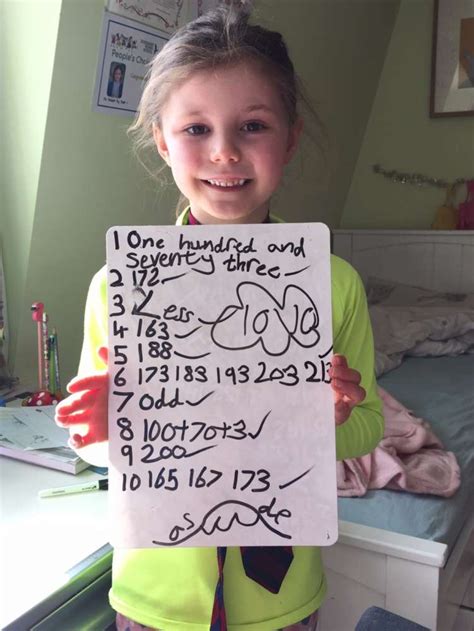 People's Cho
1 One hundred and
seventy three
2 172
3 < Less
10/10
4 163
5 188
6 173 183 193 203 213
7 odd
8 100+70+3
9 200
10 165 167 173